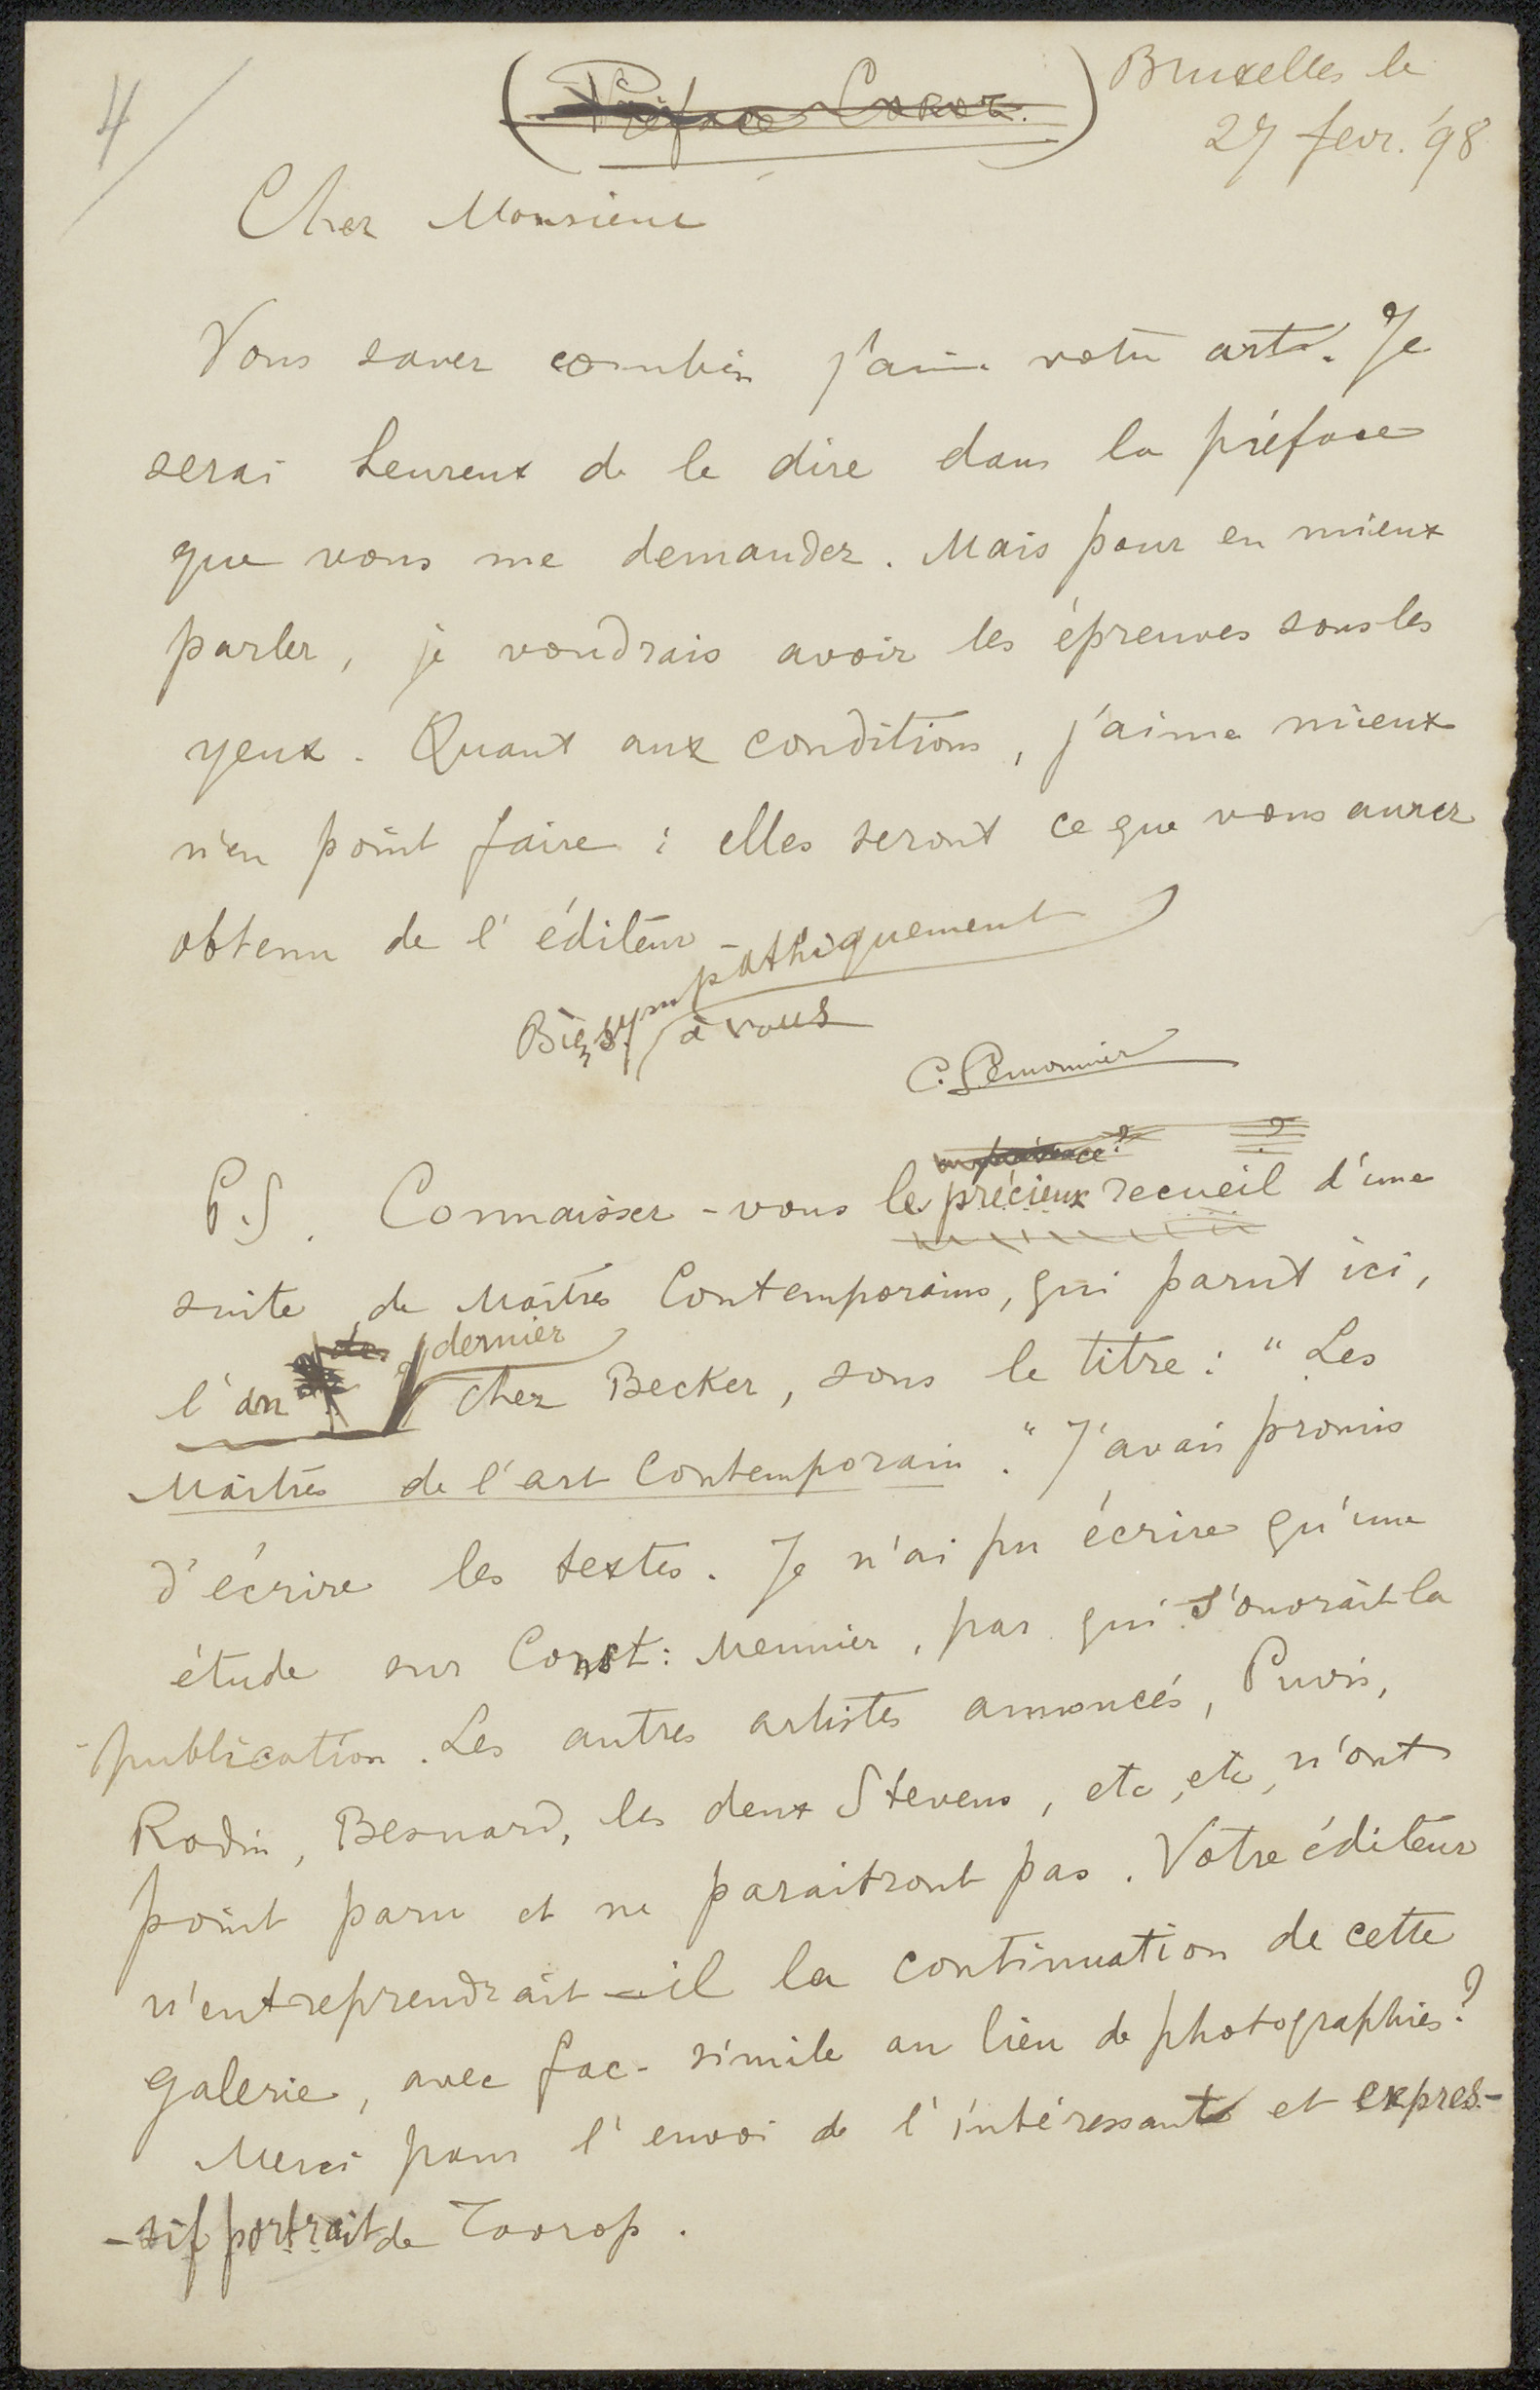 4/
(Préface Coror.)
Bruxelles le
27 fevr. '98
Cher Monsieur
Vous savez combien j'aime votre art. Je
serai heureux de le dire dans la préface
que vous me demandez. Mais pour en mieux
parler, je voudrais avoir les épreuves sous les
yeux. Quant aux conditions, j'aime mieux
n'en point faire : elles seront ce que vous aurez
obtenu de l'éditeur -
Bien sympathiquement
à vous
C. Lemonnier
P.S. Connaissez-vous le précieux recueil d'une
suite de Maîtres Contemporains, qui parut ici,
l'an dernier
chez Becker, sous le titre : " Les
Maîtres de l'art Contemporain ." J'avais promis
d'écrire les textes. Je n'ai pu écrire qu'une
étude sur Const: Meunier, par qui s'ouvrait la
publication. Les autres artistes annoncés, Puvis,
Rodin, Besnard, les deux Stevens, etc, etc, n'ont
point paru et ne paraitront pas. Votre éditeur
n'entreprendrait-il la continuation de cette
galerie, avec fac-simile au lieu de photographies?
Merci pour l'envoi de l'intéressant et expres-
-sif portrait de Toorop.